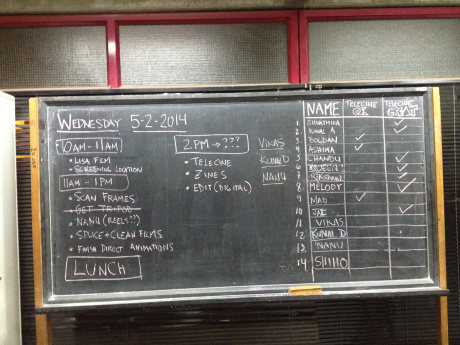 WEDNESDAY 5-2-2014
10AM - 11AM
• LISA FILM
• SCREENING LOCATION
11AM - 1PM
• SCAN FRAMES
• GET TRIPOD
• NANU (REELS!!)
• SPLICE + CLEAN FILMS
• FINISH DIRECT ANIMATIONS
LUNCH
2PM → ???
• TELECINE
• ZINES
• EDIT (DIGITAL)
VIKAS
KUNAL D
NANU
NAME TELECINE OK TELECINE
1.
2. KUNAL A ✓
3. BOLDAN ✓
4. ASHIMA ✓
5. CHANDU ✓
6. ✓
7. ✓
8 MELODY ✓
9 ✓
10 ✓
11 VIKAS
12 KUNAL D
13. NANU
14 SHIHO